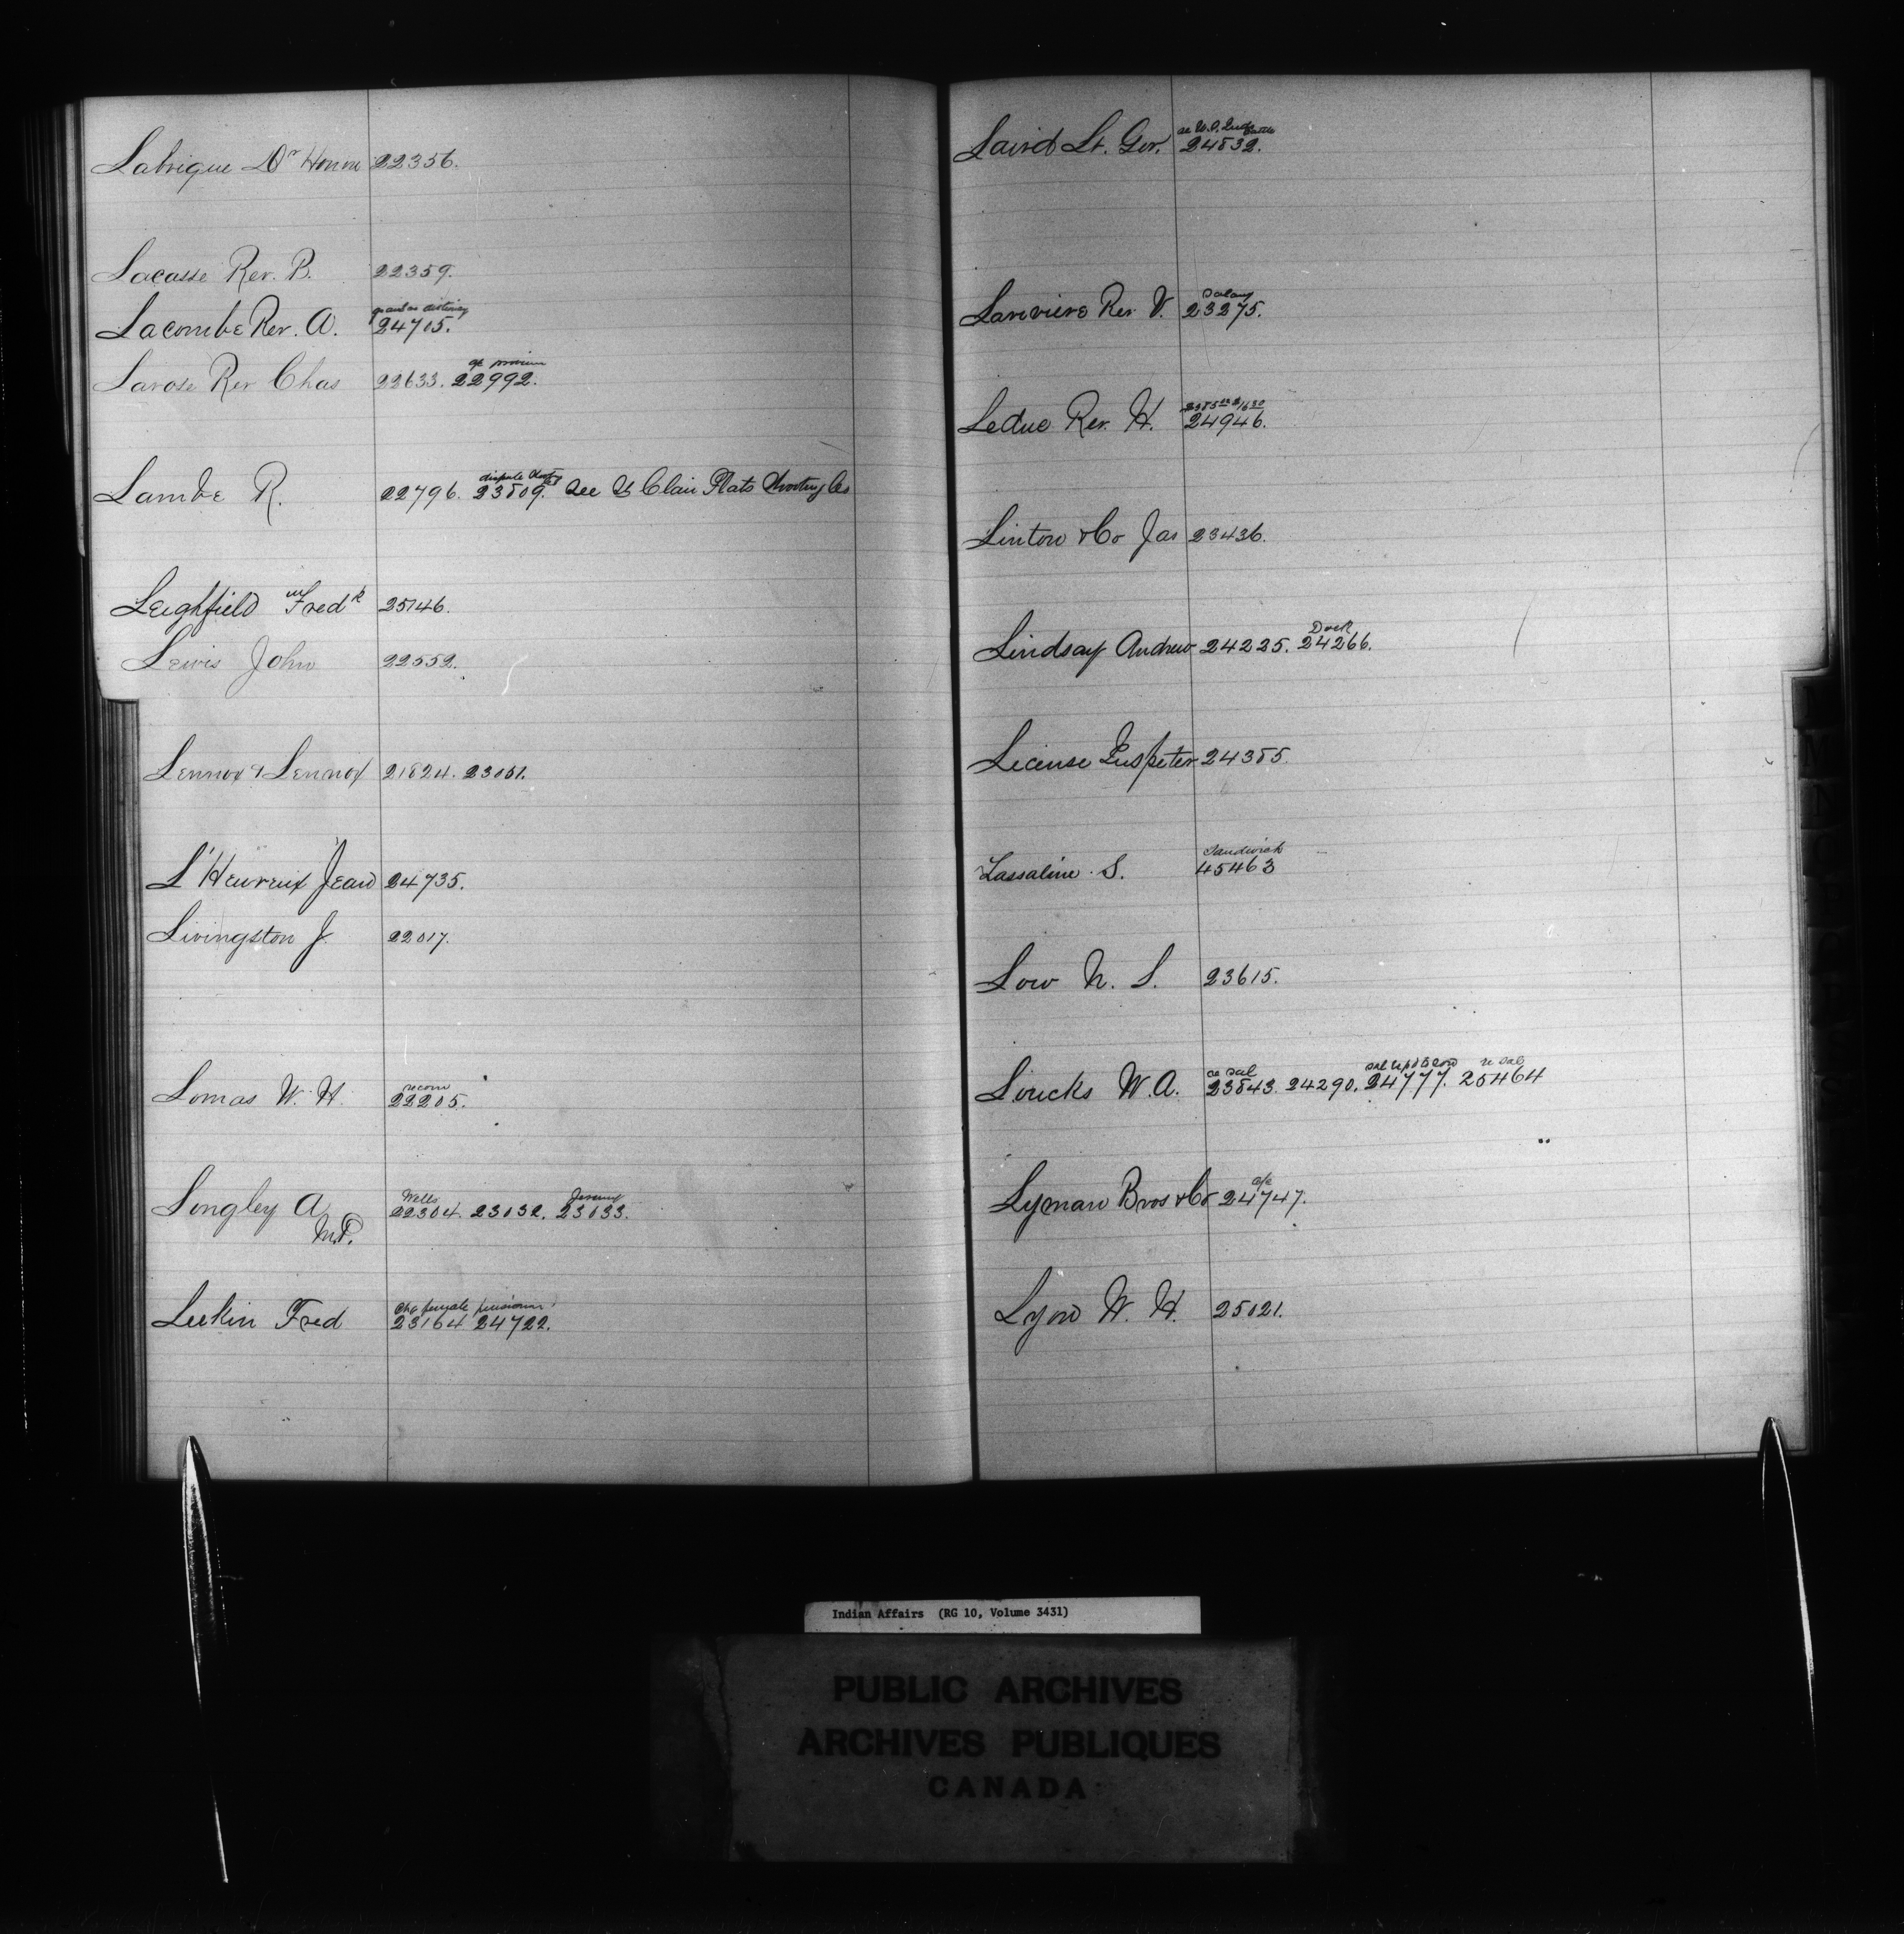 Labrique Dr Honore 22356.
Lacasse Rev. B. 22359.
Lacombe Rev. A. 24705.
Larose Rev Chas 22633. 22992.
dispute
Lambe R. 22796. 23809. See St Clair Flats Shooting Co
Leighfield Fredk 25146.
Lewis John 22552.
Lennox & Lennox 21824. 23051.
L'Heureux Jean 24735.
Livingston J. 22017.
Lomas W. H. 22205.
Wells
Longley A. 22304. 23032. 23033.
M.P.
Chq female pensioners
Luckin Fred 23164 24722.
Laird Lt. Gov. 24832.
Salary
Lariviere Rev V. 23275.
Leduc Rev. H. 24946.
Linton & Co Jas 23436.
Dock
Lindsay Andrew 24225. 24266.
License Inspeter 24385.
Sandwich
Lassaline S. 45463
Low N. S. 23615.
re sal
Loucks W. A. 23843. 24290. 24777. 25464
a/c
Lyman Bros & Co 24747.
Lyon W. H. 25021.
Indian Affairs (RG 10, Volume 3431)
PUBLIC ARCHIVES
ARCHIVES PUBLIQUES
CANADA